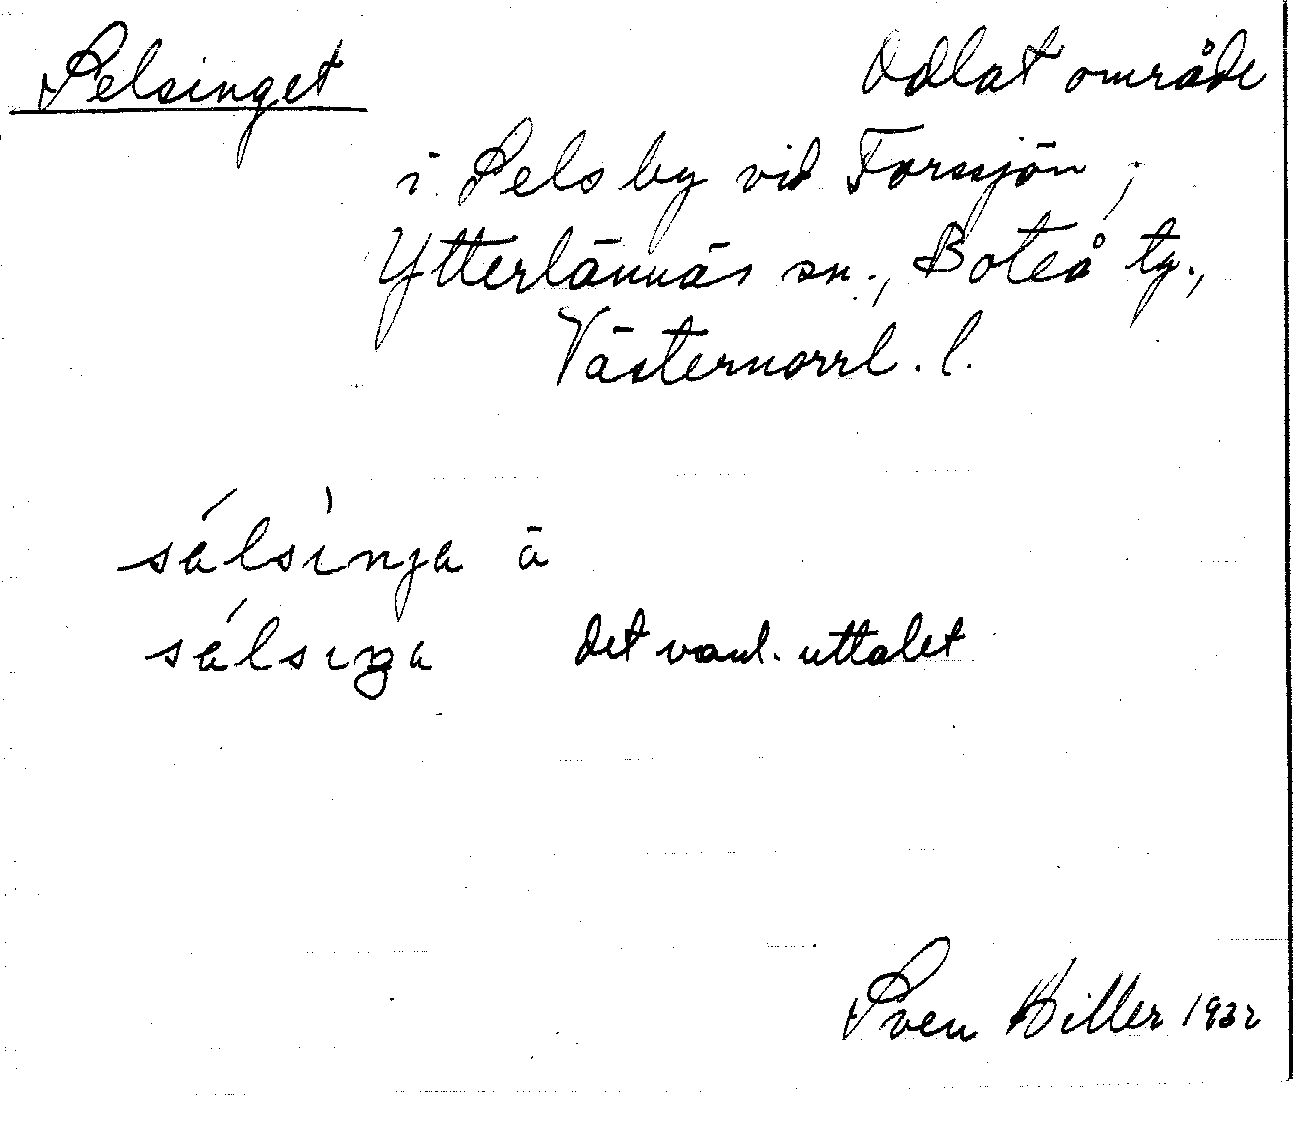 Selsinget Odlat område
i Sels by vid Forssjön,
Ytterlännäs sn., Boteå tg.,
Västernorrl. l.
sálsìnja ä
sálsıŋa det vanl. uttalet
Sven Hiller 1932